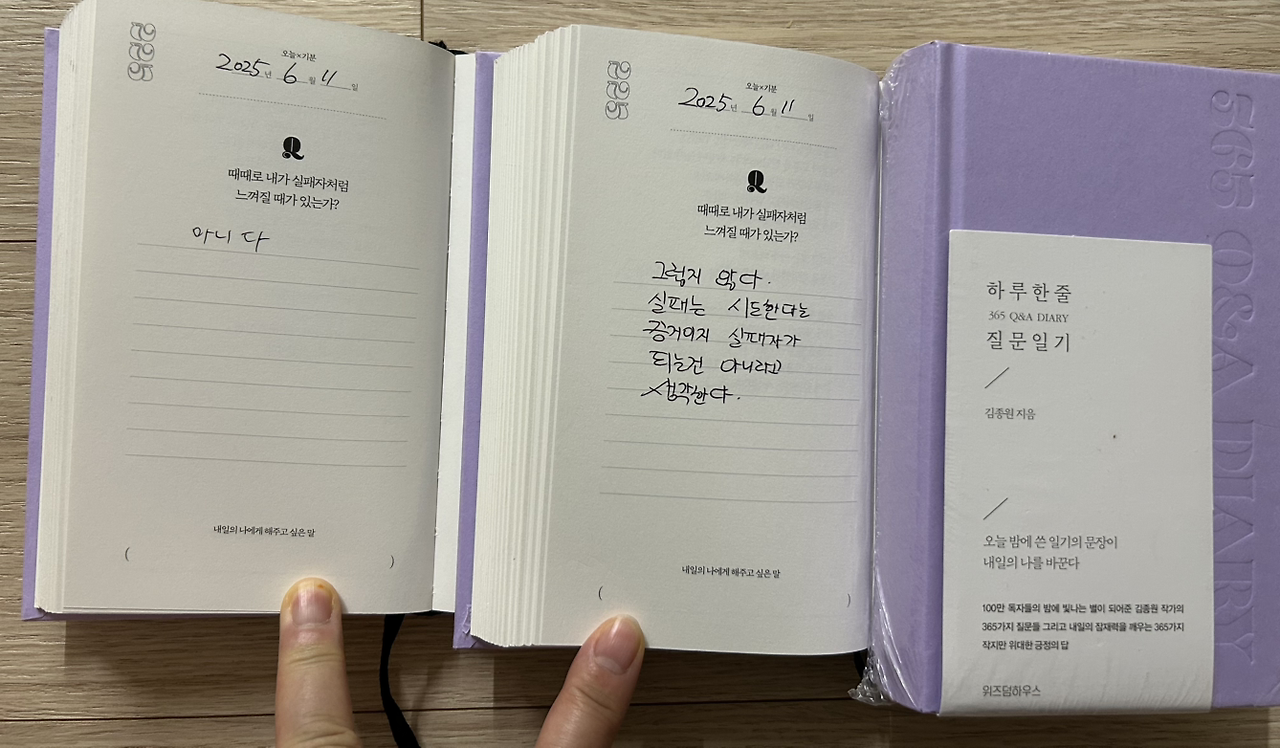 225
오늘×기분
2025년 6월 11일
Q
때때로 내가 실패자처럼
느껴질 때가 있는가?
아니 다
내일의 나에게 해주고 싶은 말
( )
225
오늘×기분
2025년 6월 11일
Q
때때로 내가 실패자처럼
느껴질 때가 있는가?
그렇지 않다.
실패는 시도한다는
증거이지 실패자가
되는건 아니라고
생각한다.
내일의 나에게 해주고 싶은 말
( )
365 Q&A DIARY
하루 한 줄
365 Q&A DIARY
질문 일기
김종원 지음
오늘 밤에 쓴 일기의 문장이
내일의 나를 바꾼다
100만 독자들의 밤에 빛나는 별이 되어준 김종원 작가의
365가지 질문들 그리고 내일의 잠재력을 깨우는 365가지
작지만 위대한 긍정의 답
위즈덤하우스